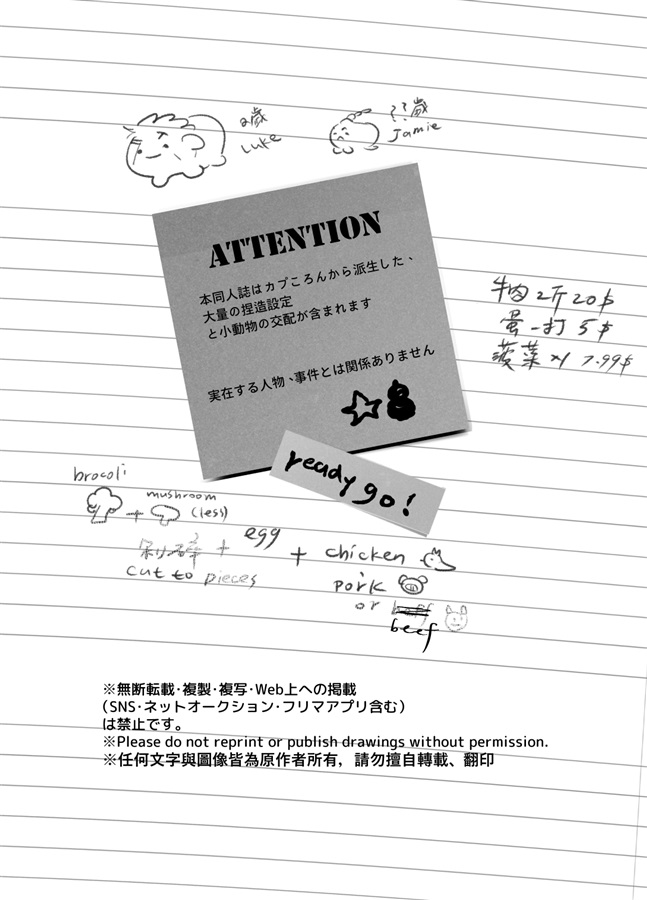 2歲
Luke
??歲
Jamie
ATTENTION
本同人誌はカプころんから派生した、
大量の捏造設定
と小動物の交配が含まれます
実在する人物、事件とは関係ありません
牛肉 2斤 20$
蛋一打 5$
菠菜 x1 7.99$
ready go!
brocoli
+ mushroom
(less)
剁碎 + egg + chicken
cut to pieces
pork
or
beef
※無断転載･複製･複写･Web上への掲載
（SNS･ネットオークション･フリマアプリ含む）
は禁止です。
※Please do not reprint or publish drawings without permission.
※任何文字與圖像皆為原作者所有，請勿擅自轉載、翻印